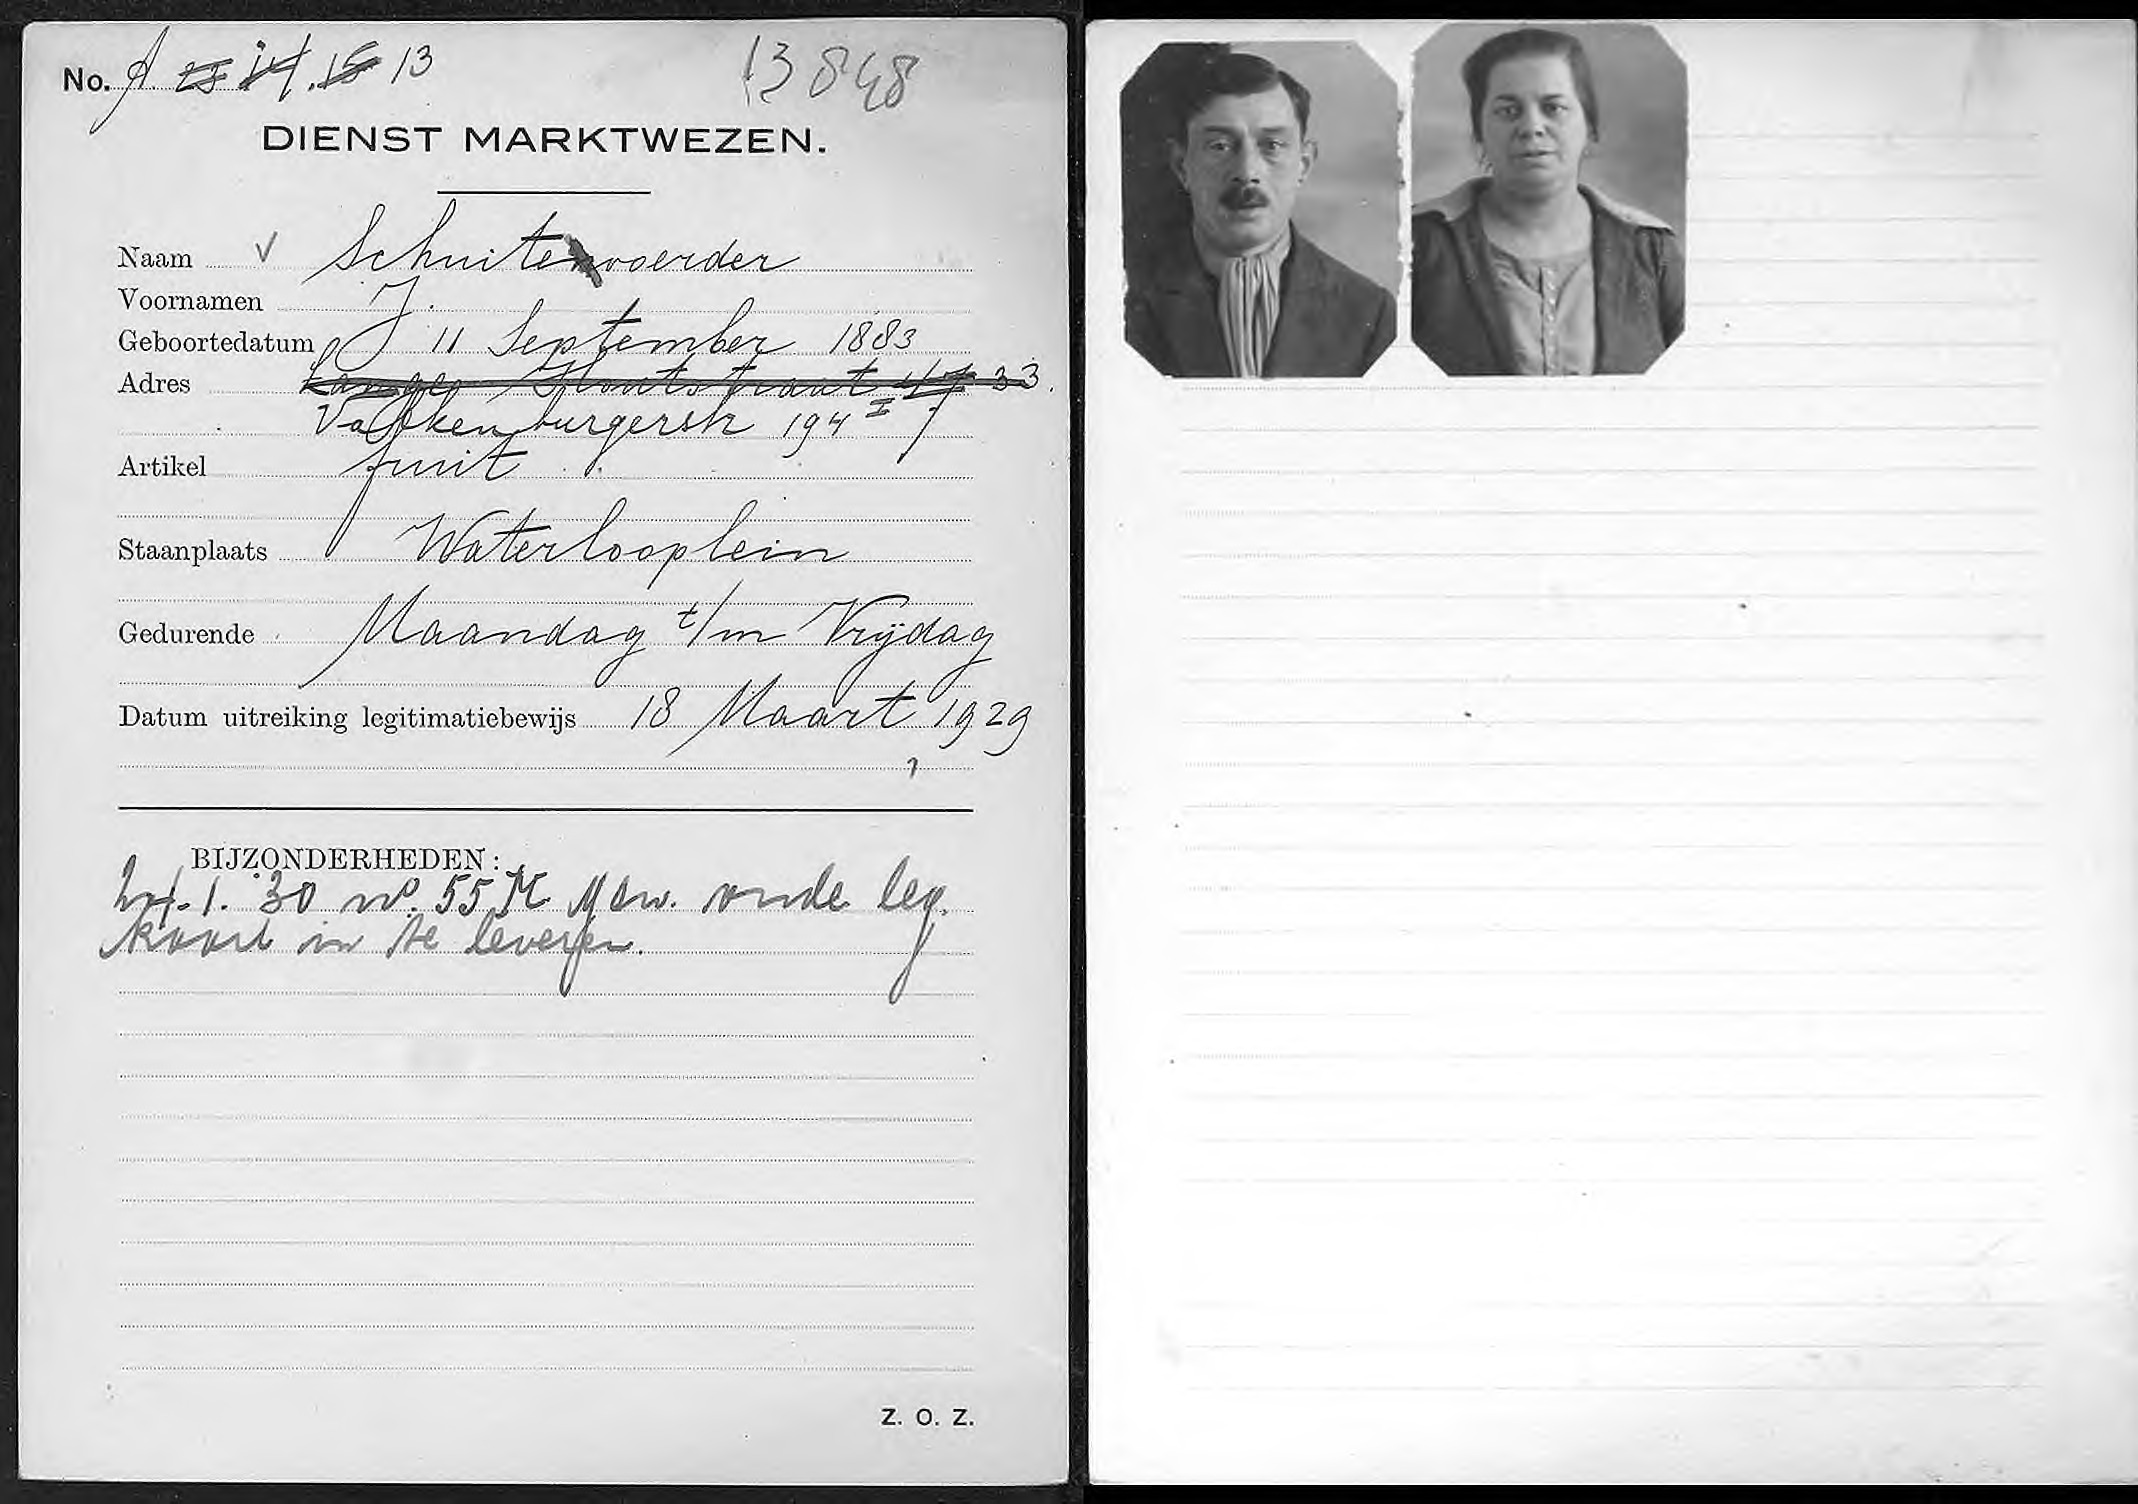 No. A 23 14 . 15 13
13848
DIENST MARKTWEZEN.
Naam V Schuitevoerder
Voornamen J.
Geboortedatum 11 September 1883
Adres Lange Houtstraat 47 33.
Valkenburgerstr 194 I
Artikel fruit
Staanplaats Waterlooplein
Gedurende Maandag t/m Vrijdag
Datum uitreiking legitimatiebewijs 18 Maart 1929
BIJZONDERHEDEN:
30 no. 55 M oude leg.
kaart in te leveren.
Z. O. Z.